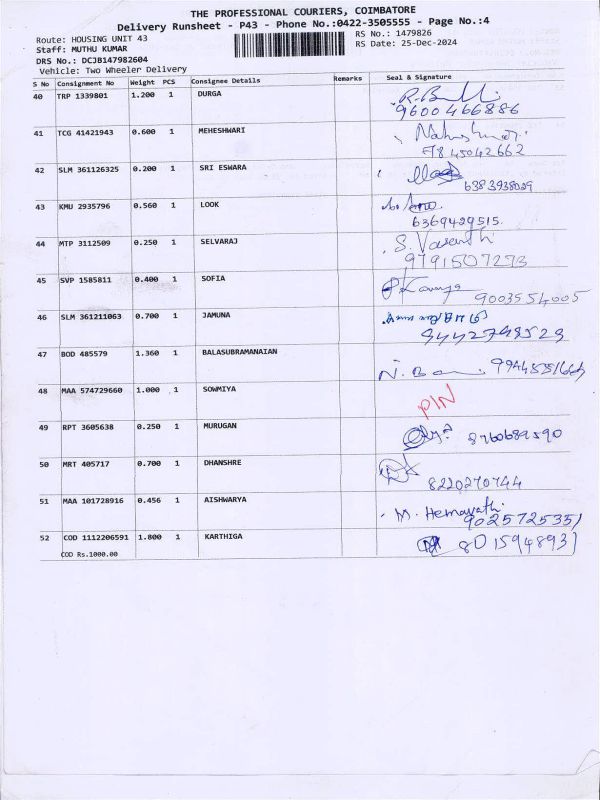 THE PROFESSIONAL COURIERS, COIMBATORE
Delivery Runsheet - P43 - Phone No.:0422-3505555 - Page No.:4
Route: HOUSING UNIT 43 RS No.: 1479826
Staff: MUTHU KUMAR RS Date: 25-Dec-2024
DRS No.: DCJB147982604
Vehicle: Two Wheeler Delivery
S No Consignment No Weight PCS Consignee Details Remarks Seal & Signature
40 TRP 1339801 1.200 1 DURGA
9600466886
41 TCG 41421943 0.600 1 MEHESHWARI
7845042662
42 SLM 361126325 0.200 1 SRI ESWARA
6383938029
43 KMU 2935796 0.560 1 LOOK
6369429515.
44 MTP 3112509 0.250 1 SELVARAJ S. Vasanthi
9791507273
45 SVP 1585811 0.400 1 SOFIA
9003554005
46 SLM 361211063 0.700 1 JAMUNA
9442798529
47 BOD 485579 1.360 1 BALASUBRAMANAIAN
48 MAA 574729660 1.000 1 SOWMIYA PIN
49 RPT 3605638 0.250 1 MURUGAN 8760689590
50 MRT 405717 0.700 1 DHANSHRE
8220270744
51 MAA 101728916 0.456 1 AISHWARYA M. Hemavathi
9025725351
52 COD 1112206591 1.800 1 KARTHIGA 8015948931
COD Rs.1000.00